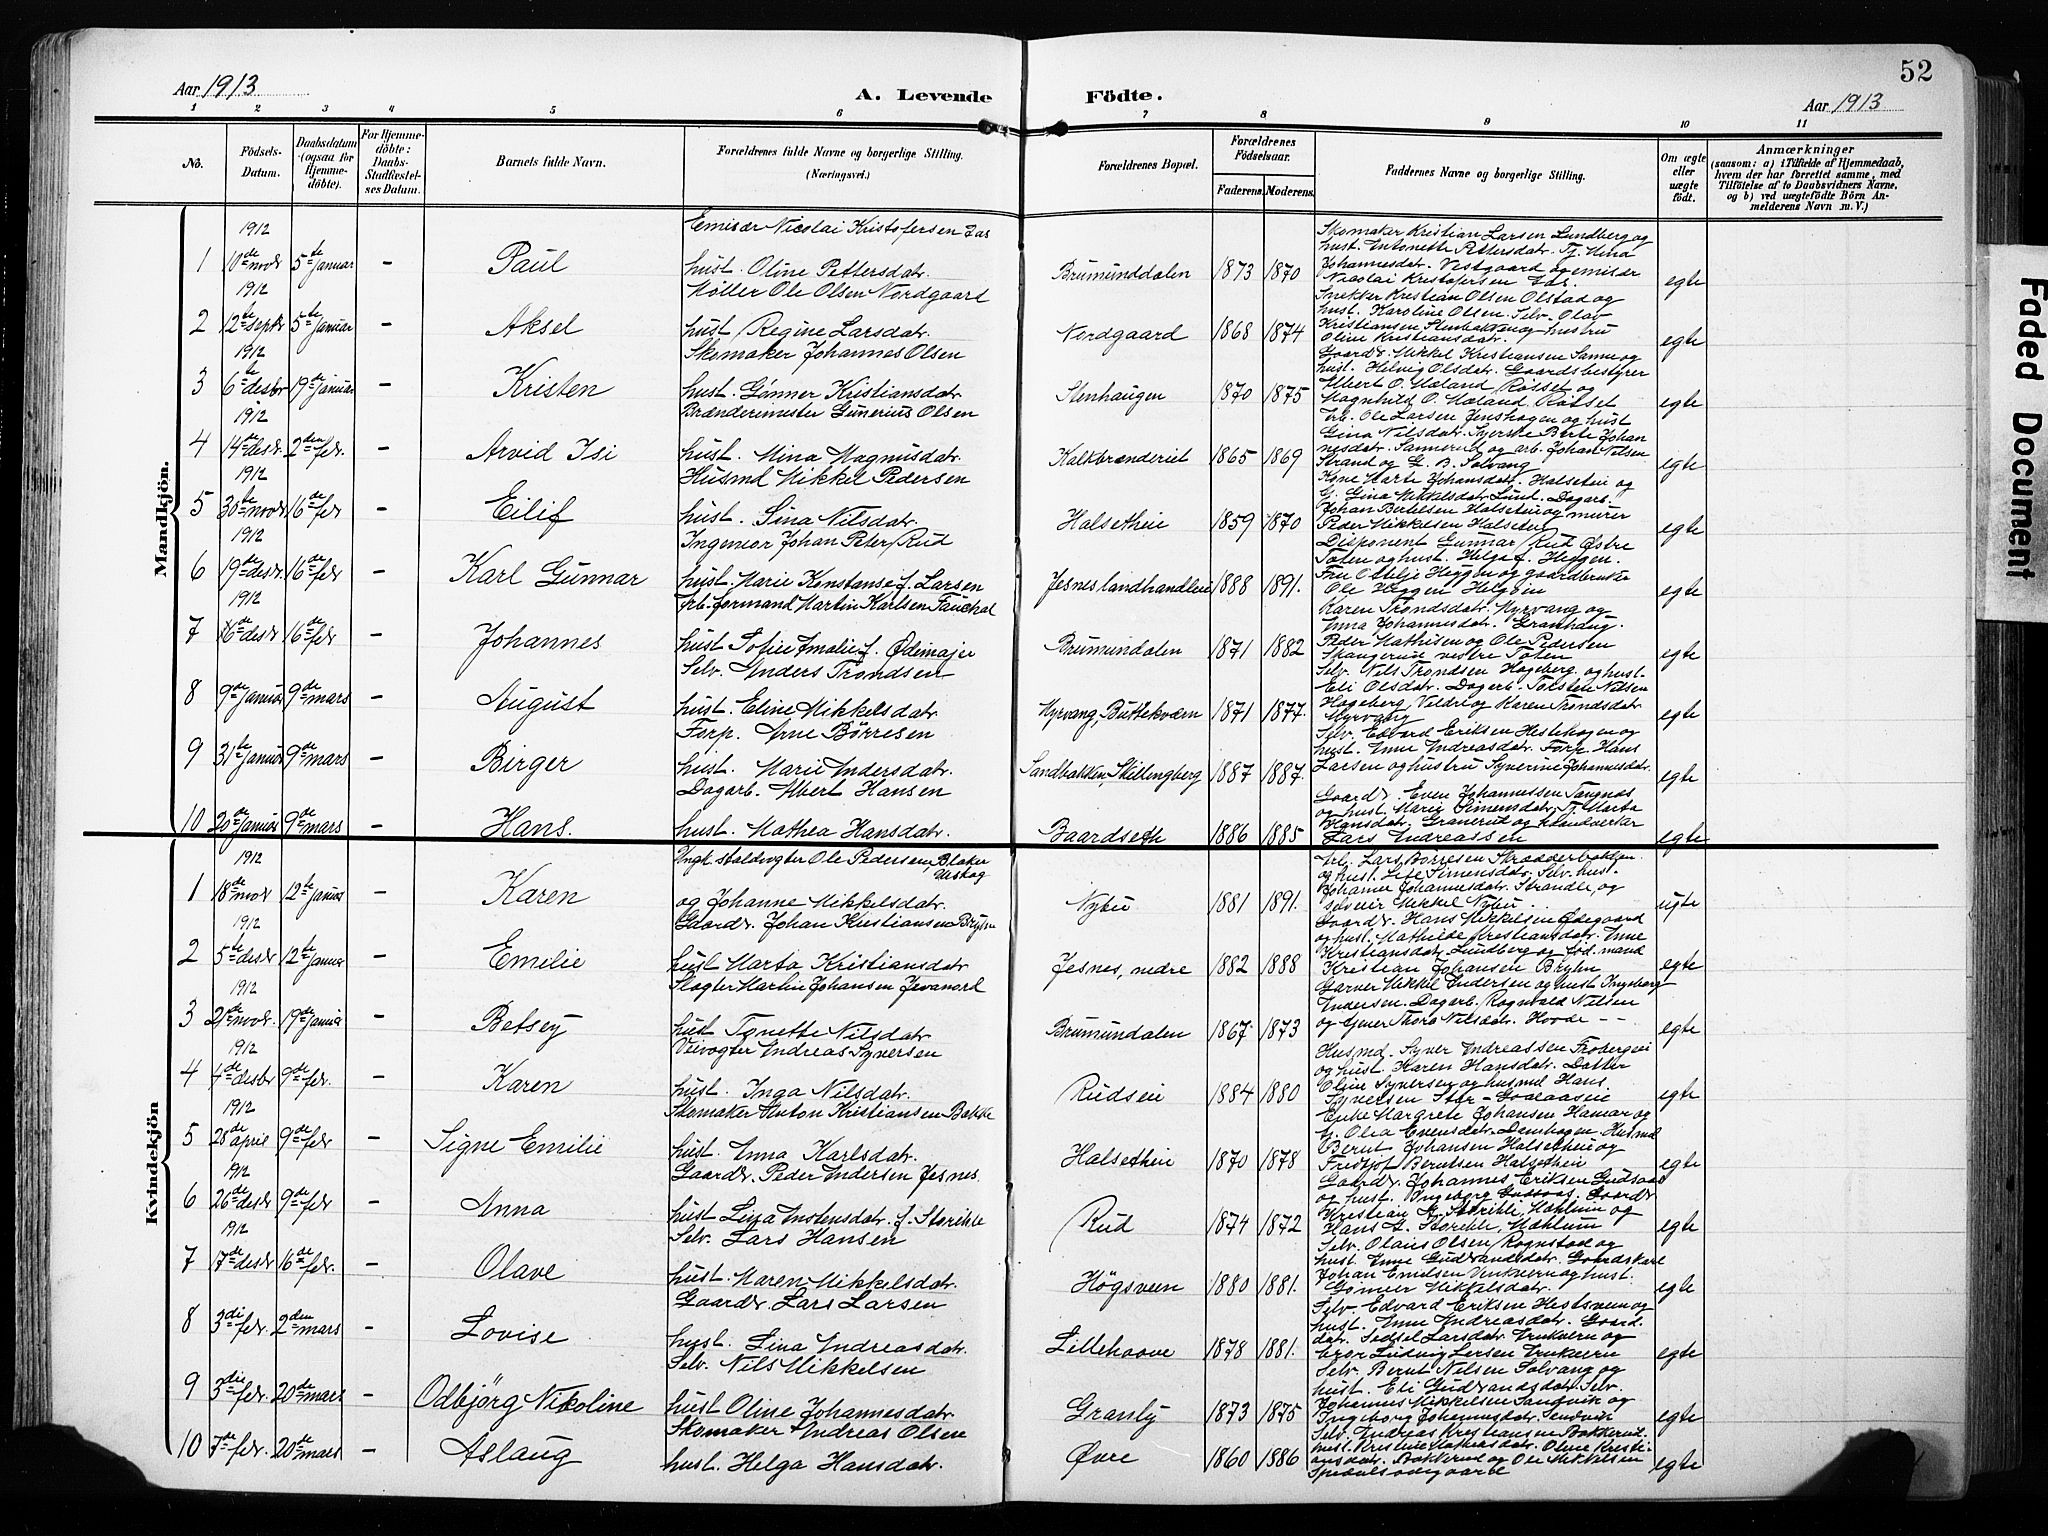 52
Aar 1913
A. Levende Födte.
Aar 1913
1 2 3 4 5 6 7 8 9 10 11
No.
Födsels-Datum.
Daabsdatum (ogsaa for Hjemmedöbte).
For Hjemmedöbte: Daabs-Stadfæstelses Datum.
Barnets fulde Navn.
Forældrenes fulde Navne og borgerlige Stilling.
(Næringsvei.)
Forældrenes Bopæl.
Forældrenes Födselsaar.
Faderens. Moderens.
Faddernes Navne og borgerlige Stilling.
Om ægte eller uægte født.
Anmærkninger
(saasom: a) i Tilfælde af Hjemmedaab,
hvem der har forrettet samme, med
Tilföielse af to Daabsvidners Navne,
og b) ved uægtefödte Börn Anmelderens Navn m. V.)
Mandkjön.
1 1912 10de novbr 5te Januar - Paul
Emisær Nicolai Kristofersen
hust. Oline Pettersdatr.
Brumunddalen 1873 1870
Skomaker Kristian Larsen Lundberg og
hust. Antonette Pettersdatr.
Johannesdatr. Vestgaard og emisær
Nicolai Kristofersen
egte
2 1912 12te septbr 5te Januar - Aksel
Møller Ole Olsen Nordgaard
hust. Regine Larsdatr.
Nordgaard 1868 1874
Snekker Kristian Olsen Olstad og
hust. Karoline Olsen. Selv. Olav
Kristiansen Stenbakken og hustru
Oline Kristiansdatr.
egte
3 1912 6te desbr 19de januar - Kristen
Skomaker Johannes Olsen
hust. Gønner Kristiansdatr
Stenhaugen 1870 1875
Gaardbr. Mikkel Kristiansen Sanne og
hust. Helvig Olsdatr. Gaardsbestyrer
Albert O. Mæland Røsset og
Magnhild O. Mæland Røsset
egte
4 1912 14de desbr. 2den febr. - Arvid Isi
Brændemester Gunerius Olsen
hust. Mina Magnusdatr.
Kalkbrænderiet 1865 1869
Arb. Ole Larsen Jenshagen og hust
Gina Nilsdatr. Syerske Berte Johan
nesdatr. Sannerud og arb. Johan Nilsen
Strand og G. B. Solvang
egte
5 1912 30te novbr 16de febr - Eilif
Husmd Mikkel Pedersen
hust. Sina Nilsdatr.
Halsetheie 1859 1870
Kone Marte Johansdatr. Halseteie og
G. Gina Mikkelsdatr Lund. Dagarb.
Johan Bertelsen Halseteie og murer
Peder Mikkelsen Halseteie
egte
6 1912 19de desbr. 16de febr - Karl Gunnar
Ingeniør Johan Peter Rud
hust. Marie Konstanse f. Larsen
Jesnes landhandleri 1888 1891.
Disponent Gunnar Rud Østre
Toten og hust. Helga f. Heggen.
Fru Otelje Heggen og gaardbruker
Ole Heggen Helgøen
egte
7 1912 16de desbr 16de febr - Johannes
Arb. formand Martin Karlsen Fauchal
hust. Sofie Amalie f. Ødemajer
Brumundalen 1871 1882
Karen Trondsdatr. Myrvang og
Anna Johannesdatr. Granhaug.
Peder Mathisen og Ole Pedersen
Skangerud vestre Toten
egte
8 9de Januar 9de mars - August
Selv. Anders Trondsen
hust. Eline Mikkelsdatr.
Myrvang, Buttekværn 1871 1877.
Selv. Nils Trondsen Hageberg, og hust.
Eli Olsdatr. Dagarb. Torsten Nilsen
Hageberg, Veldre og Karen Trondsdatr
Myrvang
egte
9 31te Januar 9de mars - Birger
Forp. Arne Børresen
hust. Marie Andersdatr.
Sandbakken, Skillingberg 1887 1887.
Selv. Edvard Eriksen Hestehagen og
hust. Anne Andreasdatr. Forp. Hans
Larsen og hustru Syverine Johannesdatr.
egte
10 20de Januar 9de mars - Hans.
Dagarb. Albert Hansen
hust. Mathea Hansdatr.
Baardseth 1886 1885
Gaardbr. Even Johannessen Tangnæs
og hust. Marie Simensdatr. Tj. Marta
Hansdatr. Granerud og haandverker
Lars Andreassen
egte
Kvindekjön
1 1912 18de novbr 12te januar - Karen
Ungk. staldvogter Ole Pedersen, Blaker
Urskog
og Johanne Mikkelsdatr.
Nybu 1881 1891.
Arb. Lars Børresen Strædderbakken
og hust. Lise Simensdatr. Selv. hust.
Johanne Johannesdatr. Strandle, og
selveier Mikkel Nybu.
uegte
2 1912 5te desbr 12te Januar - Emilie
Gaardbr. Johan Kristiansen Bryhn
hust Marta Kristiansdatr
Jesnes, nedre 1882 1888
Gaardbr. Hans Mikkelsen Ødegaard
og hust. Mathilde Kristiansdatr. Anne
Kristiansdatr. Lundberg og fød. mand
Kristian Johansen Bryhn
egte
3 1912 21de novbr. 19de Januar - Betsey
Slagter Martin Johansen Jevanord
hust Tonette Nilsdatr.
Brumundalen 1867 1873
Garver Mikkel Andersen og hust Ingeborg
Andersen. Dagarb. Rognvald Nilsen
og tjener Thora Nilsdatr. Hovde - -
egte
4 1912 4de desbr 9de febr. - Karen
Veivogter Andreas Syversen
hust. Inga Nilsdatr.
Rudseie 1884 1880
Husmd. Syver Andreassen Frobergeie
og hust. Karen Hansdatr. Datter
Oline Syversen og husmd Hans
Syversen Stor-Goalaaseie
egte
5 1912 28de april 9de febr - Signe Emilie
Skomaker Anton Kristiansen Bakke
hust. Anna Karlsdatr.
Halsetheie 1870 1878
Enke Margrete Johansen Hamar og
G. Olea Evensdatr. Demhagen. Husmd
Bernt Johansen Halsetheie og
Fredtjof Berntsen Halsetheie
egte
6 1912 26de desbr 9de febr - Anna
Gaardbr. Peder Andersen Jesnes.
hust Lina Anstensdatr. f. Storihle
Rud 1874 1872
Gaardbr. Johannes Eriksen Gudsaas
og hust. Ingeborg Gudsaas. Gaardbr
Kristian A. Storihle, Mæhlum og
Hans A. Storihle, Mæhlum
egte
7 1912 17de desbr 16de febr. - Olave
Selv. Lars Hansen
hust. Maren Mikkelsdatr.
Høgsveen 1880 1881.
Selv. Olaus Olsen Rognstad og
hust. Anne Gudbrandsdatr. Gaardskarl
Johan Emilsen Venkvern og hust.
Gønner Mikkelsdatr.
egte
8 3die febr. 2den mars - Lovise
Gaardbr. Lars Larsen
hust. Lina Andreasdatr.
Lillehaave 1878 1881.
Selv. Edvard Eriksen Hestsveen og
hust. Anne Andreasdatr. Gaard.
datr. Sidsel Larsdatr. Ankvern og
bror Ludvig Larsen Ankvern
egte
9 3die febr. 20de mars - Odbjörg Nikoline
Selv. Nils Mikkelsen
hust Oline Johannesdatr.
Granly 1873 1875
Selv. Bernt Nilsen Solvang og
hust. Eli Gudbrandsdatr. Selv.
Johannes Mikkelsen Sandvik og
Ingeborg Johannesdatr. Sandvik
egte
10 7de febr. 20de mars - Aslaug
Skomaker Andreas Olsen
hust. Helga Hansdatr.
Øvre 1860 1886
Selv. Andreas Kristiansen Bakkerud
hust. Kristine Matheasdatr. Oline Kristi-
ansdatr. Bakkerud og Ole Mikkelsen
egte
Faded Document